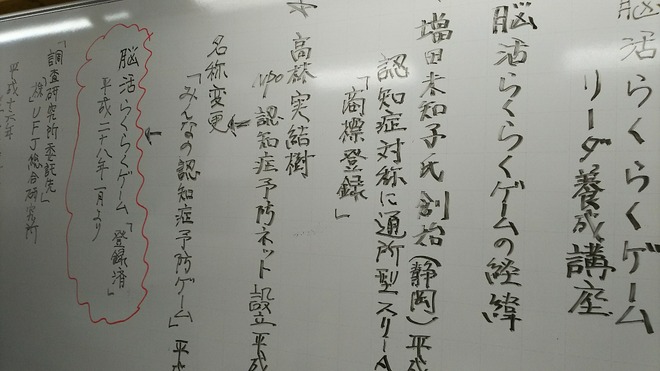 脳活らくらくゲーム
リーダ養成講座
脳活らくらくゲームの経緯
増田未知子氏 創始(静岡)平成
認知症対称に通所型スリーA
「商標登録」
高林実結樹
npo 認知症予防ネット 設立 平成
名称変更
「みんなの認知症予防ゲーム」平
脳活らくらくゲーム「登録済」
平成二十八年一月より
「調査研究所委託先」
(株)UFJ総合研究所
平成十六年